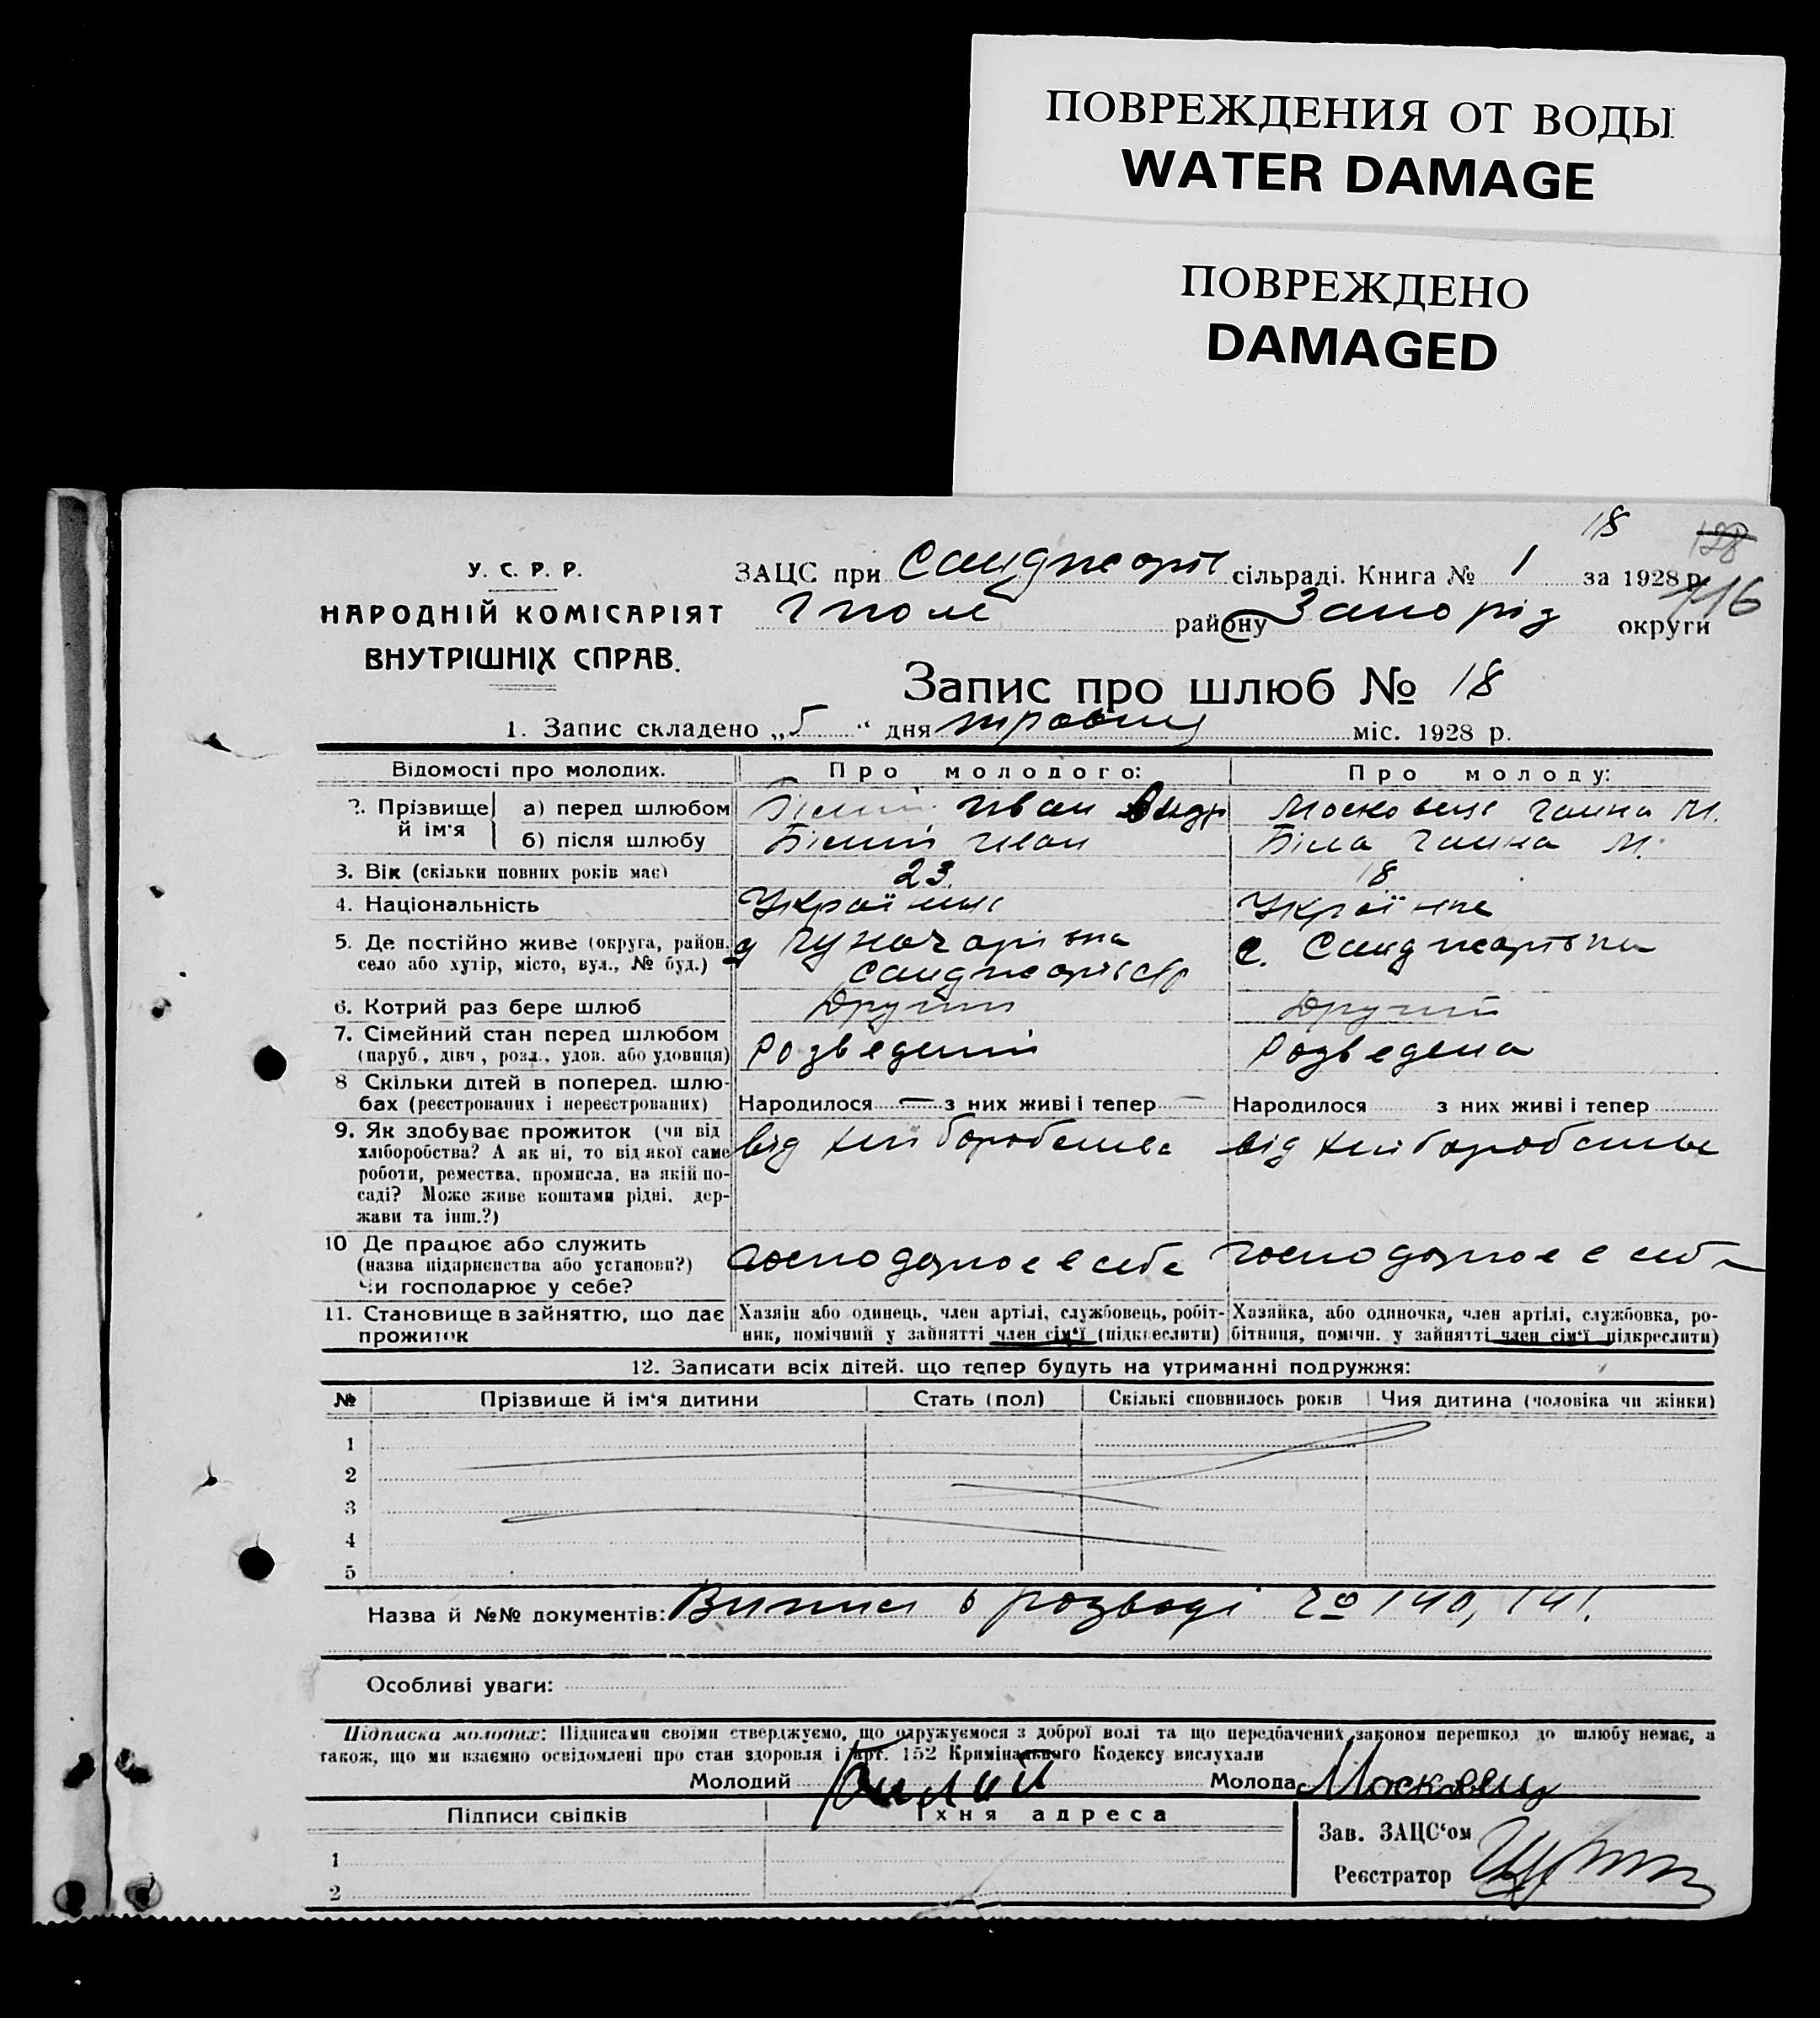 ПОВРЕЖДЕНИЯ ОТ ВОДЫ
WATER DAMAGE
ПОВРЕЖДЕНО
DAMAGED
18
128
116
У. С. Р. Р.
НАРОДНІЙ КОМІСАРІЯТ
ВНУТРІШНІХ СПРАВ.
ЗАЦС при Санджарів сільраді. Книга № 1 за 1928 р.
району Запоріз округи
Запис про шлюб № 18
1. Запис складено „5“ дня травня міс. 1928 р.
Відомості про молодих. Про молодого: Про молоду:
2. Прізвище й ім'я а) перед шлюбом Білий Иван Андр Московець Ганна М.
б) після шлюбу Білий Иван Біла Ганна М.
3. Вік (скільки повних років має) 23 18
4. Національність Українець Українка
5. Де постійно живе (округа, район, село або хутір, місто, вул., № буд.) Санджарівс/р с. Санджарівка
6. Котрий раз бере шлюб Другий Другий
7. Сімейний стан перед шлюбом (паруб., дівч, розл., удов. або удовиця) Розведений Розведена
8 Скільки дітей в поперед. шлюбах (реєстрованих і нереєстрованих) Народилося — з них живі і тепер — Народилося з них живі і тепер
9. Як здобуває прожиток (чи від хліборобства? А як ні, то від якої саме роботи, ремества, промисла, на якій посаді? Може живе коштами рідні, держави та інш.?) від хліборобства від хліборобства
10 Де працює або служить (назва підприєнства або установи?) Чи господарює у себе? господарює в себе господарює в себе
11. Становище в зайняттю, що дає прожиток Хазяін або одинець, член артілі, службовець, робітник, помічний у зайнятті член сім'ї (підкреслити) Хазяйка, або одиночка, член артілі, службовка, робітниця, помічн. у зайнятті член сім'ї підкреслити)
12. Записати всіх дітей, що тепер будуть на утриманні подружжя:
№ Прізвище й ім'я дитини Стать (пол) Скількі сповнилось років Чия дитина (чоловіка чи жінки)
1
2
3
4
5
Назва й №№ документів: Виписи о розводі 140, 141.
Особливі уваги:
Підписка молодих: Підписами своїми стверджуємо, що одружуємося з доброї волі та що передбачених законом перешкод до шлюбу немає, а
також, що ми взаємно освідомлені про стан здоровля і арт. 152 Кримінального Кодексу вислухали
Молодий Билий Молода Московец
Підписи свідків Їхня адреса
Зав. ЗАЦС'ом
Реєстратор
1
2